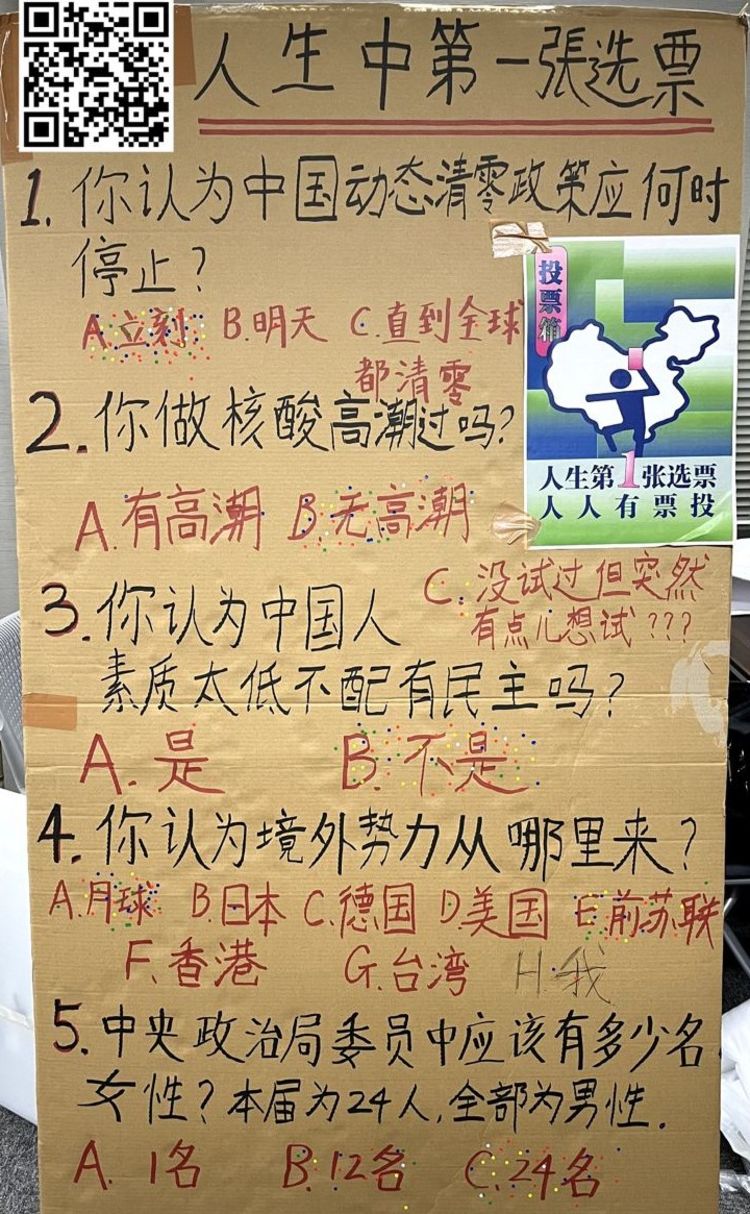 人生中第一張选票
1. 你认为中国动态清零政策应何时
停止?
A.立刻 B.明天 C.直到全球
都清零
投票箱
人生第1张选票
人人有票投
2.你做核酸高潮过吗?
A.有高潮 B.无高潮
C.没试过但突然
有点儿想试???
3.你认为中国人
素质太低不配有民主吗?
A.是 B.不是
4.你认为境外势力从哪里来?
A.月球 B.日本 C.德国 D.美国 E.前苏联
F.香港 G.台湾 H.我
5.中央政治局委员中应该有多少名
女性?本届为24人,全部为男性.
A. 1名 B.12名 C.24名